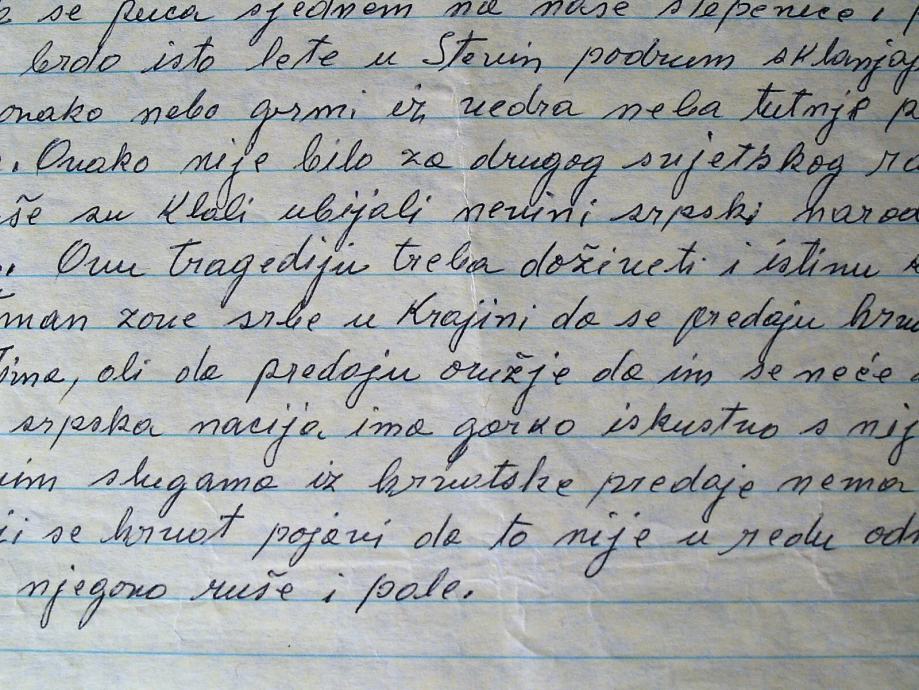 se puca sjednom na naše slepenice i
brdo isto lete u Stevin podrum sklanjaj
onako nebo grmi iz vedra neba tutnji p
. Onako nije bilo za drugog svjetskog ra
še su klali ubijali nevini srpski narod
. Ovu tragediju treba doživeti i istinu
man zove srbe u Krajini da se predaju hrva
ima, ali da predaju oružje da im se neće
srpska nacija ima gorko iskustvo s nj
im slugama iz hrvatske predaje nema
ii se hrvat pojavi da to nije u redu od
njegovo ruše i pale.